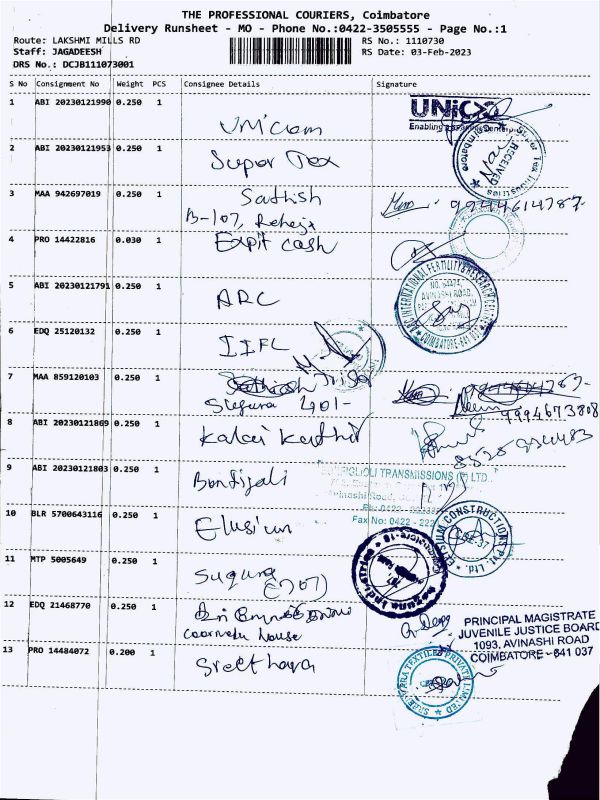 THE PROFESSIONAL COURIERS, Coimbatore
Delivery Runsheet - MO - Phone No.:0422-3505555 - Page No.:1
Route: LAKSHMI MILLS RD RS No.: 1110730
Staff: JAGADEESH RS Date: 03-Feb-2023
DRS No.: DCJB111073001
S No Consignment No Weight PCS Consignee Details Signature
1 ABI 20230121990 0.250 1
Unicom
UNiCXO
Enabling
2 ABI 20230121953 0.250 1
Super Tex
Super Tex Industries Coimbatore
RECEIVED
3 MAA 942697019 0.250 1 Sathish
B-107, Raheja
9944614787-
4 PRO 14422816 0.030 1 Expit cash
5 ABI 20230121791 0.250 1
ARC
ARC INTERNATIONAL FERTILITY & RESEARCH CENTRE
AVINASHI ROAD,
COIMBATORE-641
6 EDQ 25120132 0.250 1
IIFL
7 MAA 859120103 0.250 1
Suguna 201-
9994673808
8 ABI 20230121869 0.250 1
Kalai Kathir
9 ABI 20230121803 0.250 1
Bonfigali
BONFIGLIOLI TRANSMISSIONS (P) LTD.,
Avinashi Road,
Fax No: 0422 - 222
10 BLR 5700643116 0.250 1
Elusium
ELYSIUM CONSTRUCTIONS Pvt. Ltd.
11 MTP 5005649 0.250 1
Suguna
(707)
12 EDQ 21468770 0.250 1
house
PRINCIPAL MAGISTRATE
JUVENILE JUSTICE BOARD
1093, AVINASHI ROAD
COIMBATORE - 641 037
13 PRO 14484072 0.200 1
Sreethara
TEXTILES PRIVATE LIMITED